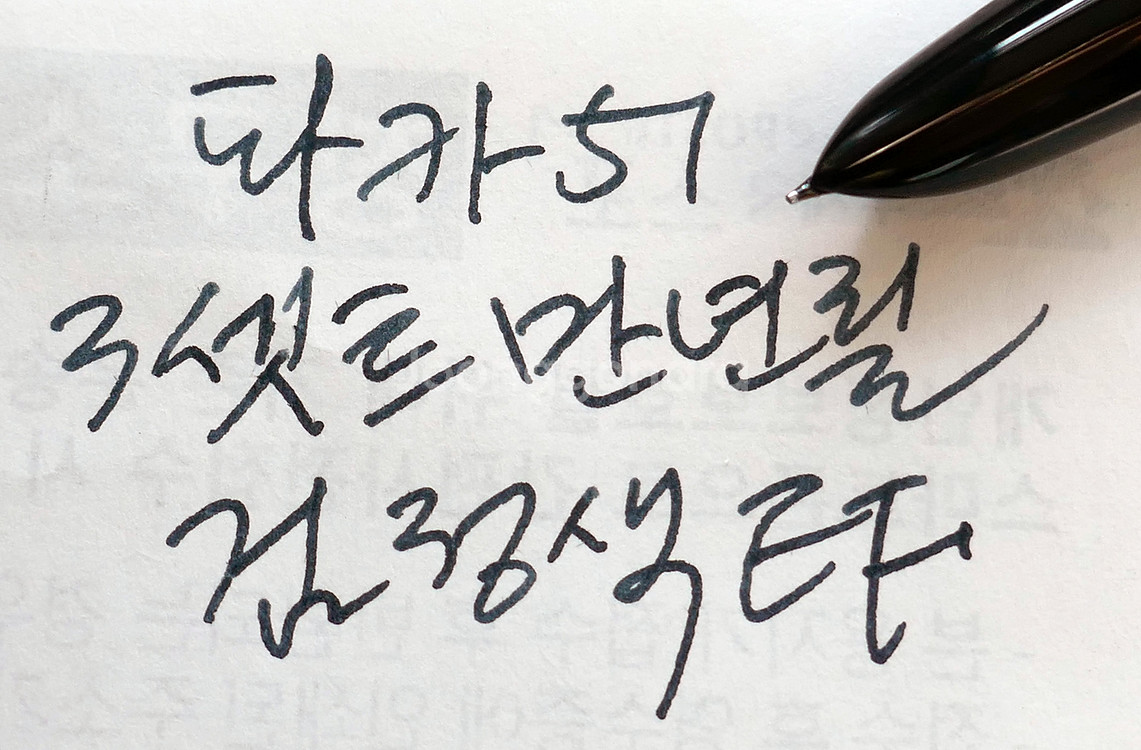 파카 51
3셋트 만년필
검정색 EF